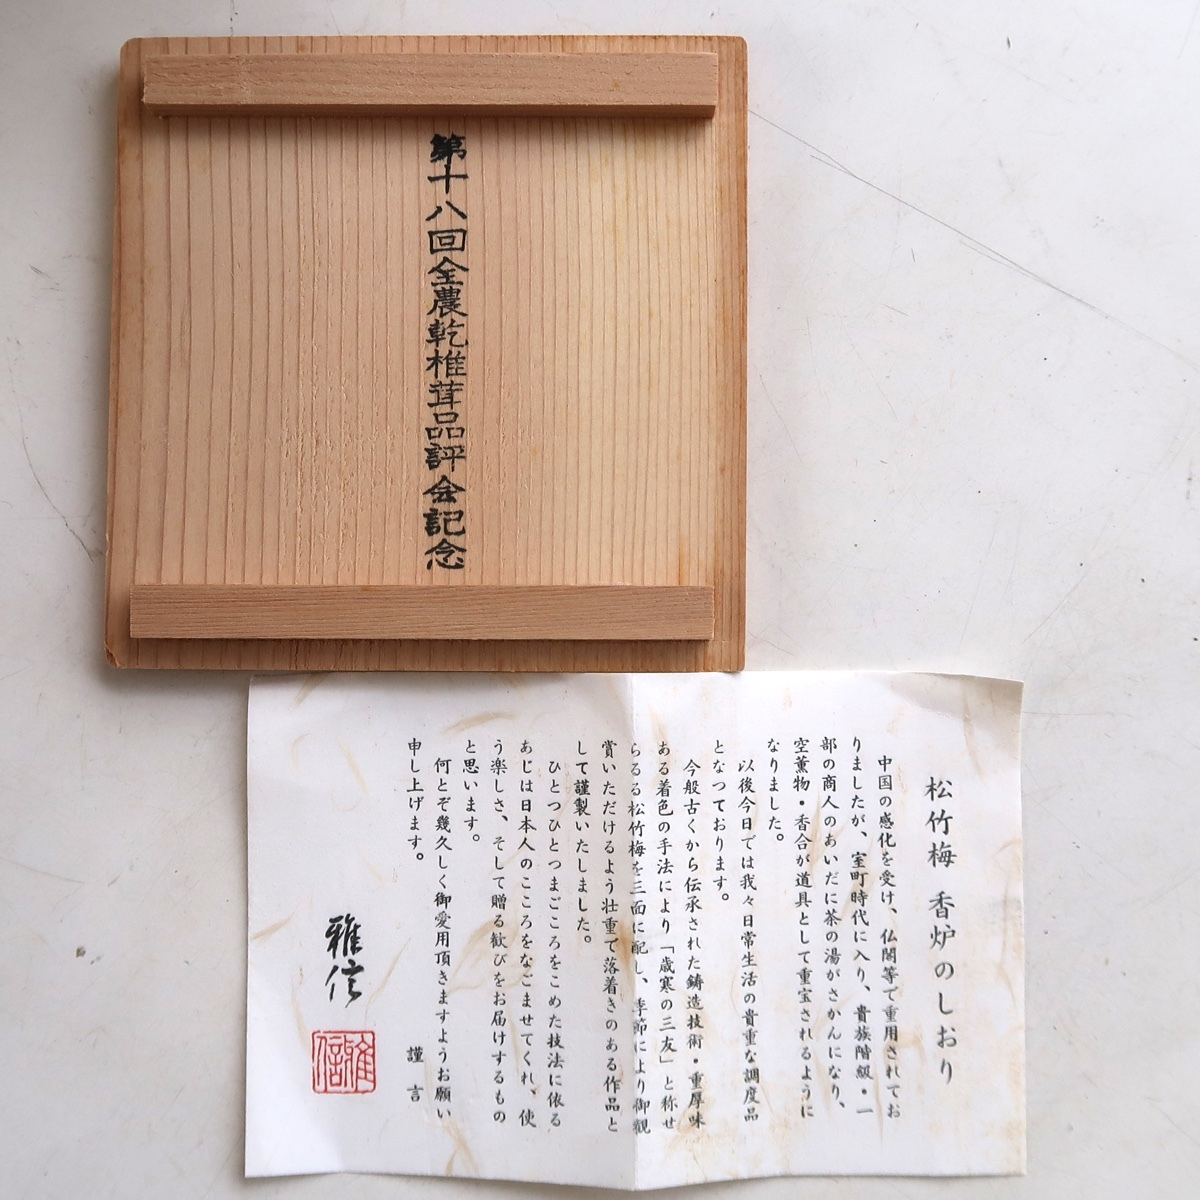 第十八回全農乾椎茸品評会記念
松竹梅 香炉のしおり
中国の感化を受け、仏閣等で重用されてお
りましたが、室町時代に入り、貴族階級・一
部の商人のあいだに茶の湯がさかんになり、
空薫物・香合が道具として重宝されるように
なりました。
以後今日では我々日常生活の貴重な調度品
となつております。
今般古くから伝承された鋳造技術・重厚味
ある着色の手法により「歳寒の三友」と称せ
らるる松竹梅を三面に配し、季節により御観
賞いただけるよう壮重で落着きのある作品と
して謹製いたしました。
ひとつひとつまごころをこめた技法に依る
あじは日本人のこころをなごませてくれ、使
う楽しさ、そして贈る歓びをお届けするもの
と思います。
何とぞ幾久しく御愛用頂きますようお願い
申し上げます。
謹言
雅信
雅信